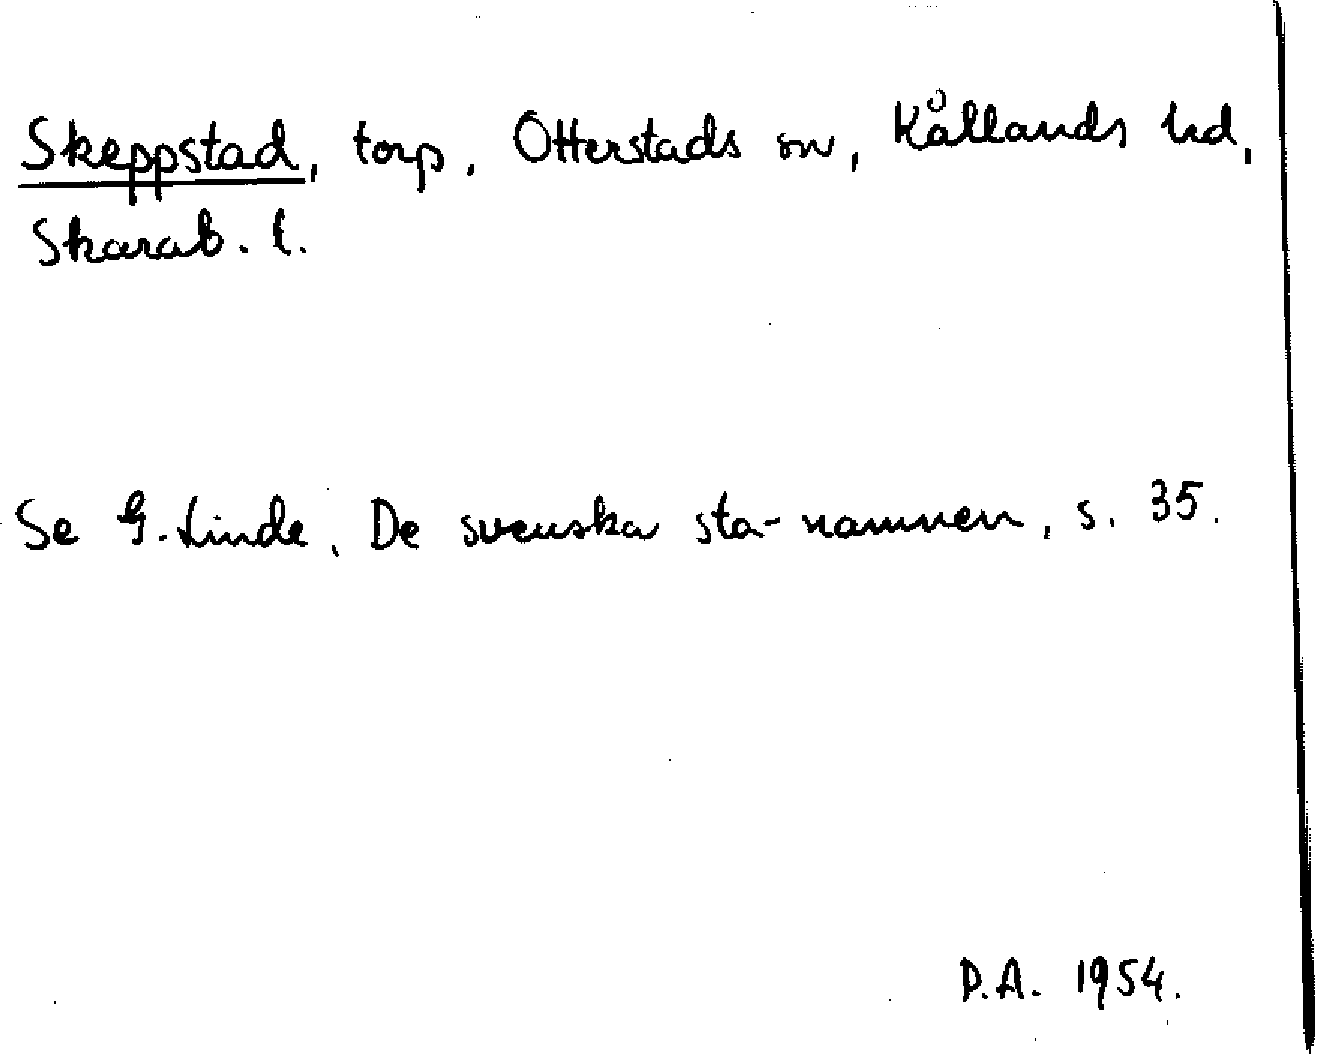 Skeppstad, torp, Otterstads sn, Kållands hd,
Skarab. l.
Se G. Linde, De svenska sta-namnen, s. 35.
D.A. 1954.